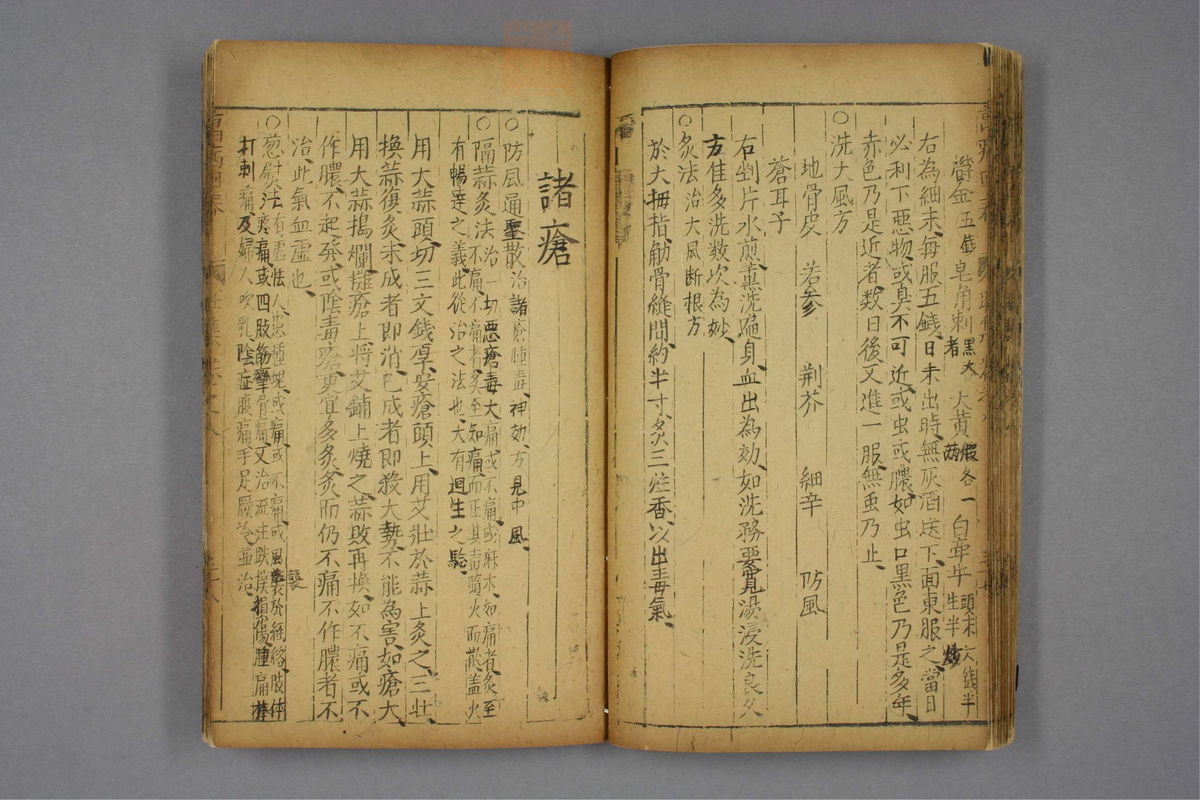 鬱金五錢 皂角刺黑大者 大黃煨各一兩 白牽牛頭末六錢半生半炒
右為細末每服五錢日未出時無灰酒送下面東服之當日
必利下惡物或臭不可近或虫或膿如虫口黑色乃是多年
赤色乃是近者數日後又進一服無虫乃止
○洗大風方
地骨皮 苦參 荆芥 細辛 防風
蒼耳子
右剉片水煎熏洗遍身血出為効如洗務要寬湯浸洗良久
方佳多洗数次為妙
○炙法治大風断根方
於大拇指觔骨縫間約半寸炙三炷香以出毒氣
諸瘡
○防風通聖散治諸瘡腫毒神効方見中風
○隔蒜炙法治一切惡瘡毒大痛或不痛或麻木如痛者炙至
不痛不痛者炙至知痛而正其毒隨火而散盖火
有暢達之義此從治之法也大有迴生之騐
用大蒜頭切三文錢厚安瘡頭上用艾壯於蒜上炙之三壮
換蒜復炙未成者即消已成者即殺大勢不能為害如瘡大
用大蒜搗爛攤瘡上將艾鋪上燒之蒜敗再換如不痛或不
作膿不起發或陰毒瘡更宜多炙炙而仍不痛不作膿者不
治此氣血虛也
○葱熨法有虛怯人患腫塊或痛或不痛或風襲於經絡肢体
疼痛或四肢筋攣骨痛又治流注跌撲損傷腫痛棒
打刺痛及婦人吹乳陰症腹痛手足厥冷並治
襲